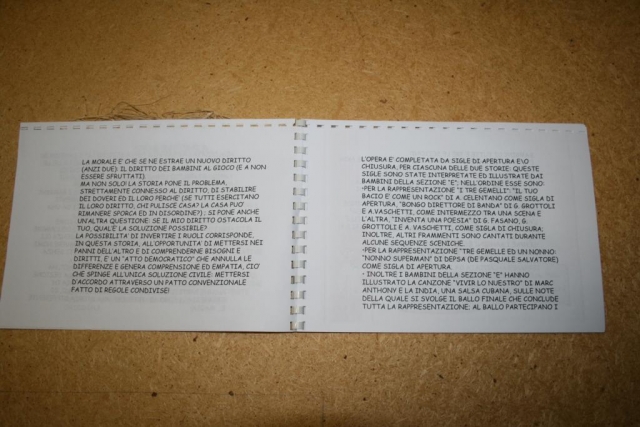 LA MORALE E' CHE SE NE ESTRAE UN NUOVO DIRITTO
(ANZI DUE): IL DIRITTO DEI BAMBINI AL GIOCO (E A NON
ESSERE SFRUTTATI).
MA NON SOLO! LA STORIA PONE IL PROBLEMA,
STRETTAMENTE CONNESSO AL DIRITTO, DI STABILIRE
DEI DOVERI ED IL LORO PERCHE' (SE TUTTI ESERCITANO
IL LORO DIRITTO, CHI PULISCE CASA? LA CASA PUO'
RIMANERE SPORCA ED IN DISORDINE?) ; SI PONE ANCHE
UN'ALTRA QUESTIONE: SE IL MIO DIRITTO OSTACOLA IL
TUO, QUAL'E' LA SOLUZIONE POSSIBILE?
LA POSSIBILITA' DI INVERTIRE I RUOLI CORRISPONDE,
IN QUESTA STORIA, ALL'OPPORTUNITA' DI METTERSI NEI
PANNI DELL'ALTRO E DI COMPRENDERNE BISOGNI E
DIRITTI, E' UN "ATTO DEMOCRATICO" CHE ANNULLA LE
DIFFERENZE E GENERA COMPRENSIONE ED EMPATIA, CIO'
CHE SPINGE ALL'UNICA SOLUZIONE CIVILE: METTERSI
D'ACCORDO ATTRAVERSO UN PATTO CONVENZIONALE
FATTO DI REGOLE CONDIVISE!
L'OPERA E' COMPLETATA DA SIGLE DI APERTURA E\O
CHIUSURA, PER CIASCUNA DELLE DUE STORIE; QUESTE
SIGLE SONO STATE INTERPRETATE ED ILLUSTRATE DAI
BAMBINI DELLA SEZIONE "E"; NELL'ORDINE ESSE SONO:
-PER LA RAPPRESENTAZIONE "I TRE GEMELLI": "IL TUO
BACIO E' COME UN ROCK" DI A. CELENTANO COME SIGLA DI
APERTURA, "BONGO DIRETTORE DI BANDA" DI G. GROTTOLI
E A.VASCHETTI, COME INTERMEZZO TRA UNA SCENA E
L'ALTRA, "INVENTA UNA POESIA" DI G. FASANO, G.
GROTTOLI E A. VASCHETTI, COME SIGLA DI CHIUSURA;
INOLTRE, ALTRI FRAMMENTI SONO CANTATI DURANTE
ALCUNE SEQUENZE SCENICHE.
-PER LA RAPPRESENTAZIONE "TRE GEMELLE ED UN NONNO:
"NONNO SUPERMAN" DI DEPSA (DE PASQUALE SALVATORE)
COME SIGLA DI APERTURA.
- INOLTRE I BAMBINI DELLA SEZIONE "E" HANNO
ILLUSTRATO LA CANZONE "VIVIR LO NUESTRO" DI MARC
ANTHONY E LA INDIA, UNA SALSA CUBANA, SULLE NOTE
DELLA QUALE SI SVOLGE IL BALLO FINALE CHE CONCLUDE
TUTTA LA RAPPRESENTAZIONE; AL BALLO PARTECIPANO I